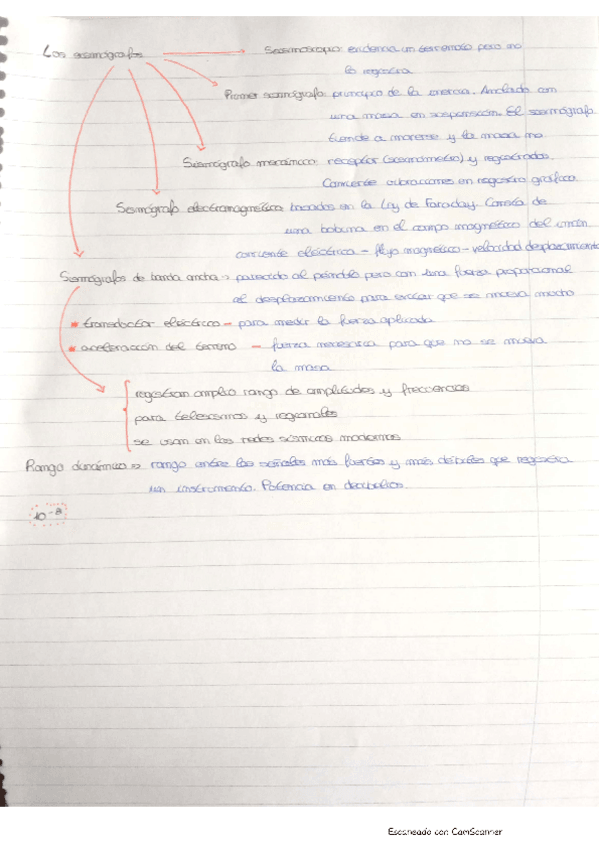 Los sismógrafos
Seismoscopio: evidencia un terremoto pero no
lo registra
Primer sismógrafo: principio de la inercia. Anclado con
una masa en suspensión. El sismógrafo
tiende a moverse y la masa no
Seismógrafo mecánico: receptor (sismómetro) y registrador.
Convierte vibraciones en registro gráfico.
Seismógrafo electromagnético: basados en la Ley de Faraday. Consta de
una bobina en el campo magnético del imán
corriente eléctrica - flujo magnético - velocidad desplazamiento
Seismógrafos de banda ancha → parecido al péndulo pero con una fuerza proporcional
al desplazamiento para evitar que se mueva mucho
* transductor eléctrico - para medir la fuerza aplicada
* aceleración del terreno - fuerza necesaria para que no se mueva
la masa
registran amplio rango de amplitudes y frecuencias
para telesismos y regionales
se usan en las redes sísmicas modernas
Rango dinámico → rango entre las señales más fuertes y más débiles que registra
un instrumento. Potencia en decibelios.
10⁻⁸
Escaneado con CamScanner